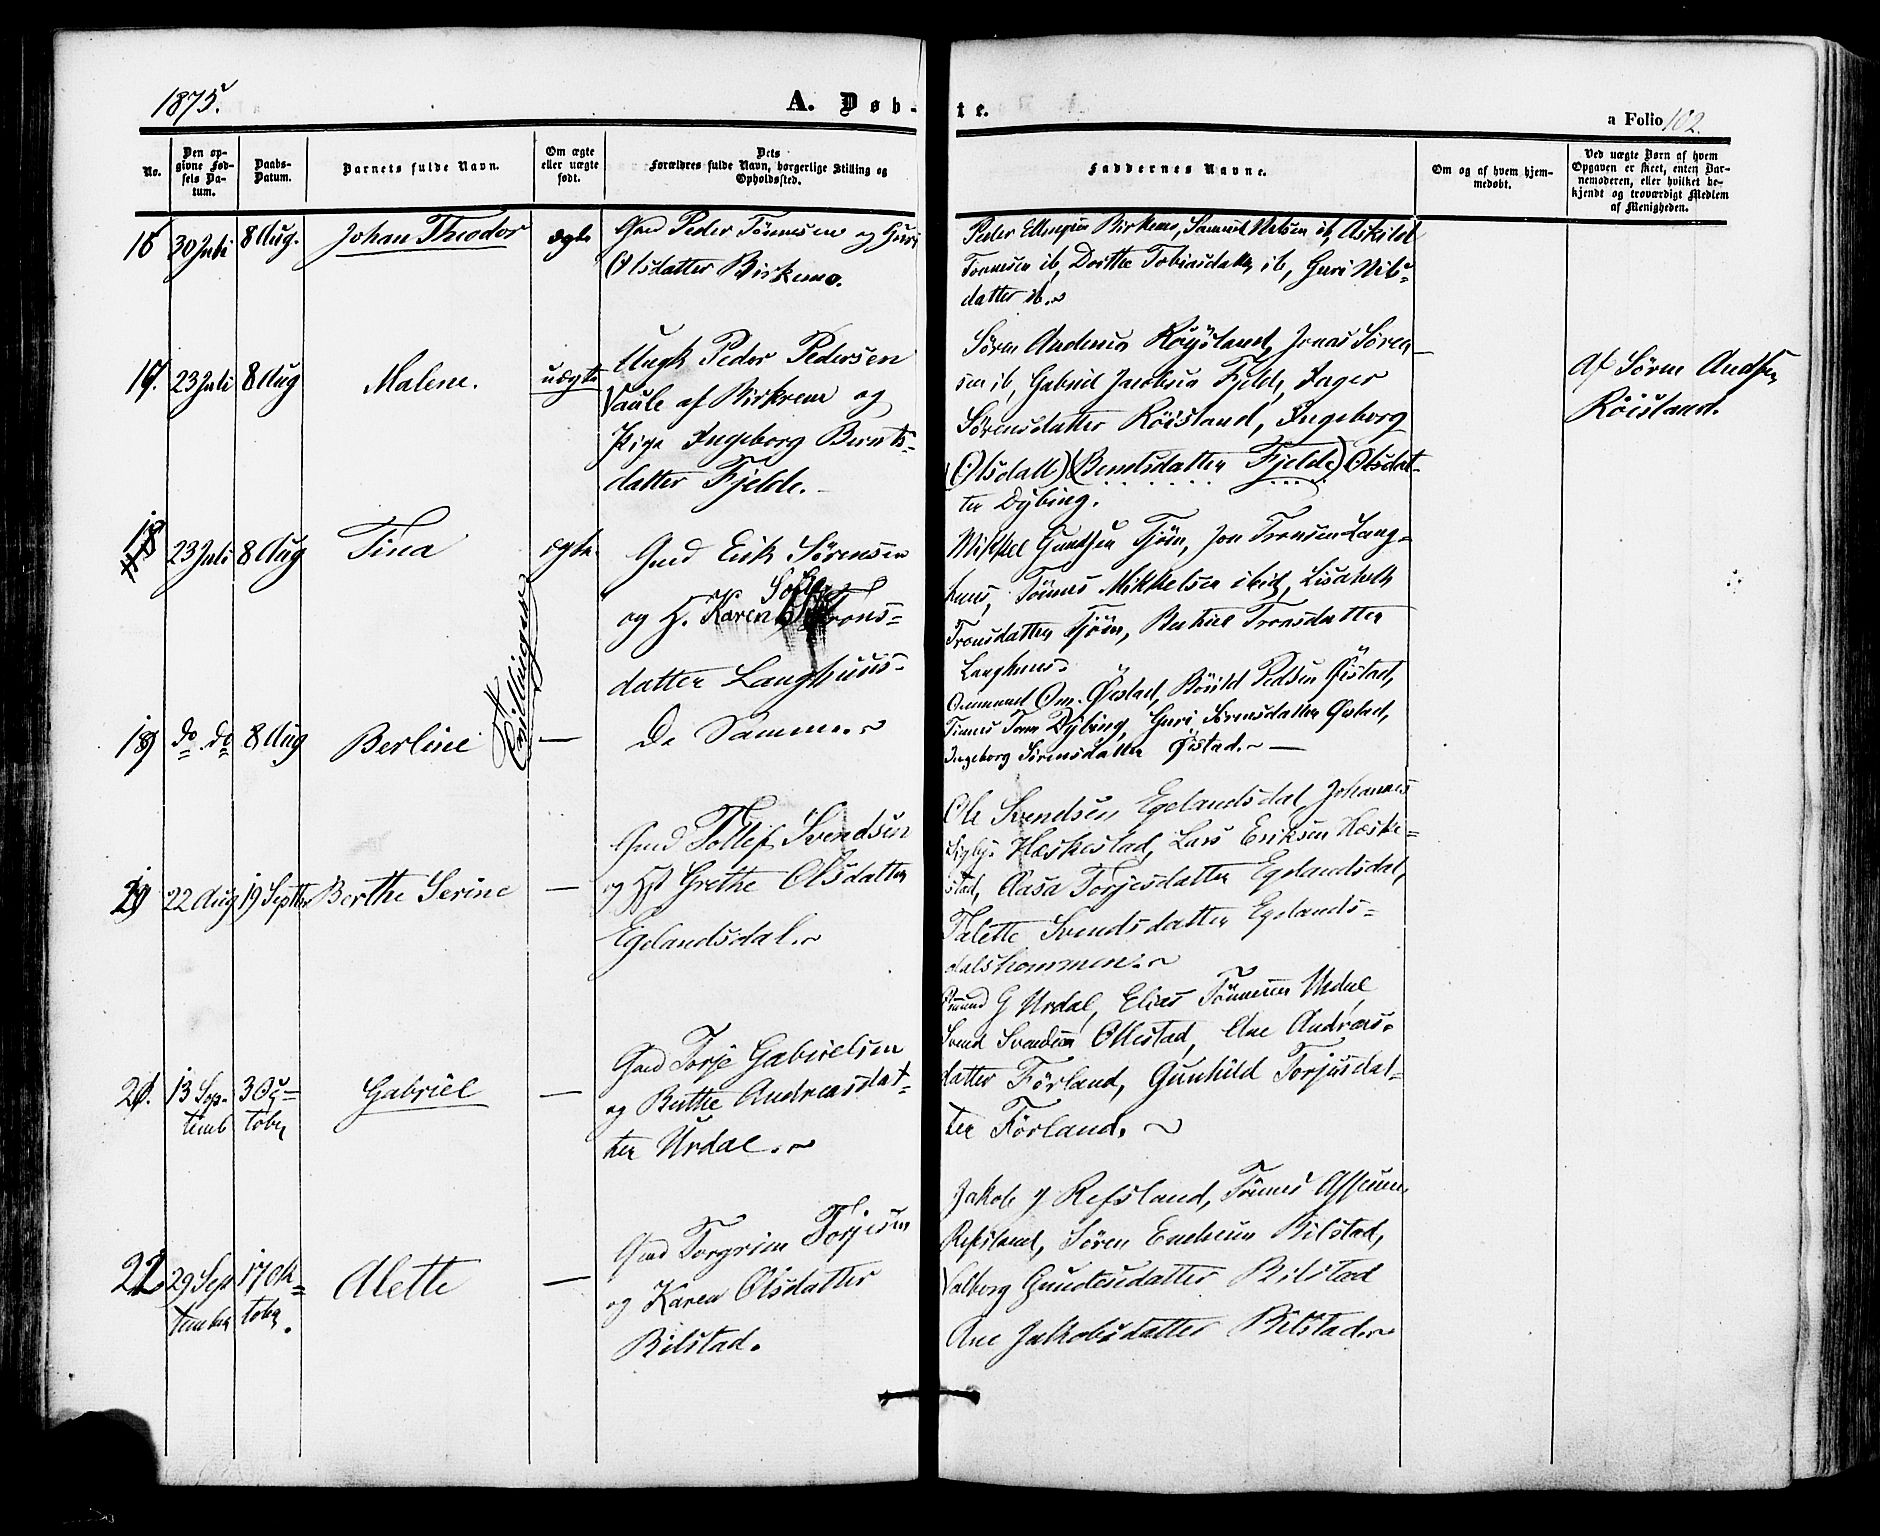 1875.
A. Døb-
te.
a Folio 102.
No.
Den op-
givne Fød-
sels Da-
tum.
Daabs-
Datum.
Barnets fulde Navn.
Om ægte
eller uægte
født.
Dets
Forældres fulde Navn, borgerlige Stilling og
Opholdssted.
Faddernes Navne.
Om og af hvem hjem-
medøbt.
Ved uægte Børn af hvem
Opgaven er skeet, enten Bar-
nemoderen, eller hvilket be-
kjendt og troværdigt Medlem
af Menigheden.
16 30 Juli 8 Aug. Johan Theodor ægte
Gmd Peder Tönnesen og Guri
Olsdatter Birkemo.
Peder Birkemo, Samuel Nilsen ib, Askild
Tönnesen ib, Dorthe Tobiasdatter ib, Guri Nils-
datter ib.
17. 23 Juli 8 Aug Malene. uægte
Ungk Peder Pedersen
Vaule af Birkrem og
Pige Ingeborg Bernts-
datter Fjelde.
Sören Andersen Röysland, Jonas Sören-
sen ib, Gabriel Jacobsen Fjelde, Inger
Sörensdatter Röisland, Ingeborg
(Olsdatt) (Berntsdatter Fjelde) Olsdat-
ter Dybing.
Af Sören Andsen
Röisland.
18 23 Juli 8 Aug Tina ægte
Gmd Erik Sörensen
og H. Karen Sofie Trons-
datter Langhuus-
Mikkel Gundsen Tjörn, Jon Tronsen Lang-
huus, Tönnes Mikkelsen ibid, Lisabeth
Tronsdatter Tjörn, Tronsdatter
Langhuus
Tvillinger
19 do do 8 Aug Berline —
De Samme.
Ommund Om. Öistad, Pedsen Öistad,
Tönnes Dybing, Guri Sörensdatter Öistad,
Ingeborg Sörensdatter Öistad. —
20 22 Aug 19 Septbr Berthe Serine —
Gmd Tollef Svendsen
og Hst Grethe Olsdatter
Egelandsdal.
Ole Svendsen Egelandsdal, Johannes
Sigbj. Hæskestad, Lars Eriksen Hæske-
stad, Aasa Torjesdatter Egelandsdal,
Talette Svendsdatter Egelands-
dalshommen.
21. 13 Sep-
temb
3 Oc-
tober
Gabriel —
Gmd Torje Gabrielsen
og Berthe Andreasdat-
ter Urdal.
Ommund G Urdal, Elias Tönnesen Urdal
Svend Svendsen Ollestad, Ane Andreas-
datter Förland, Gunhild Torjusdat-
ter Förland.
22 29 Sep
tember
17 Ok-
tober.
Alette —
Gmd Torgrim Torjesen
og Karen Olsdatter
Bilstad.
Jakob J Refsland, Tönnes
Refsland, Sören Bilstad,
Valborg Bilstad
Ane Jakobsdatter Bilstad.